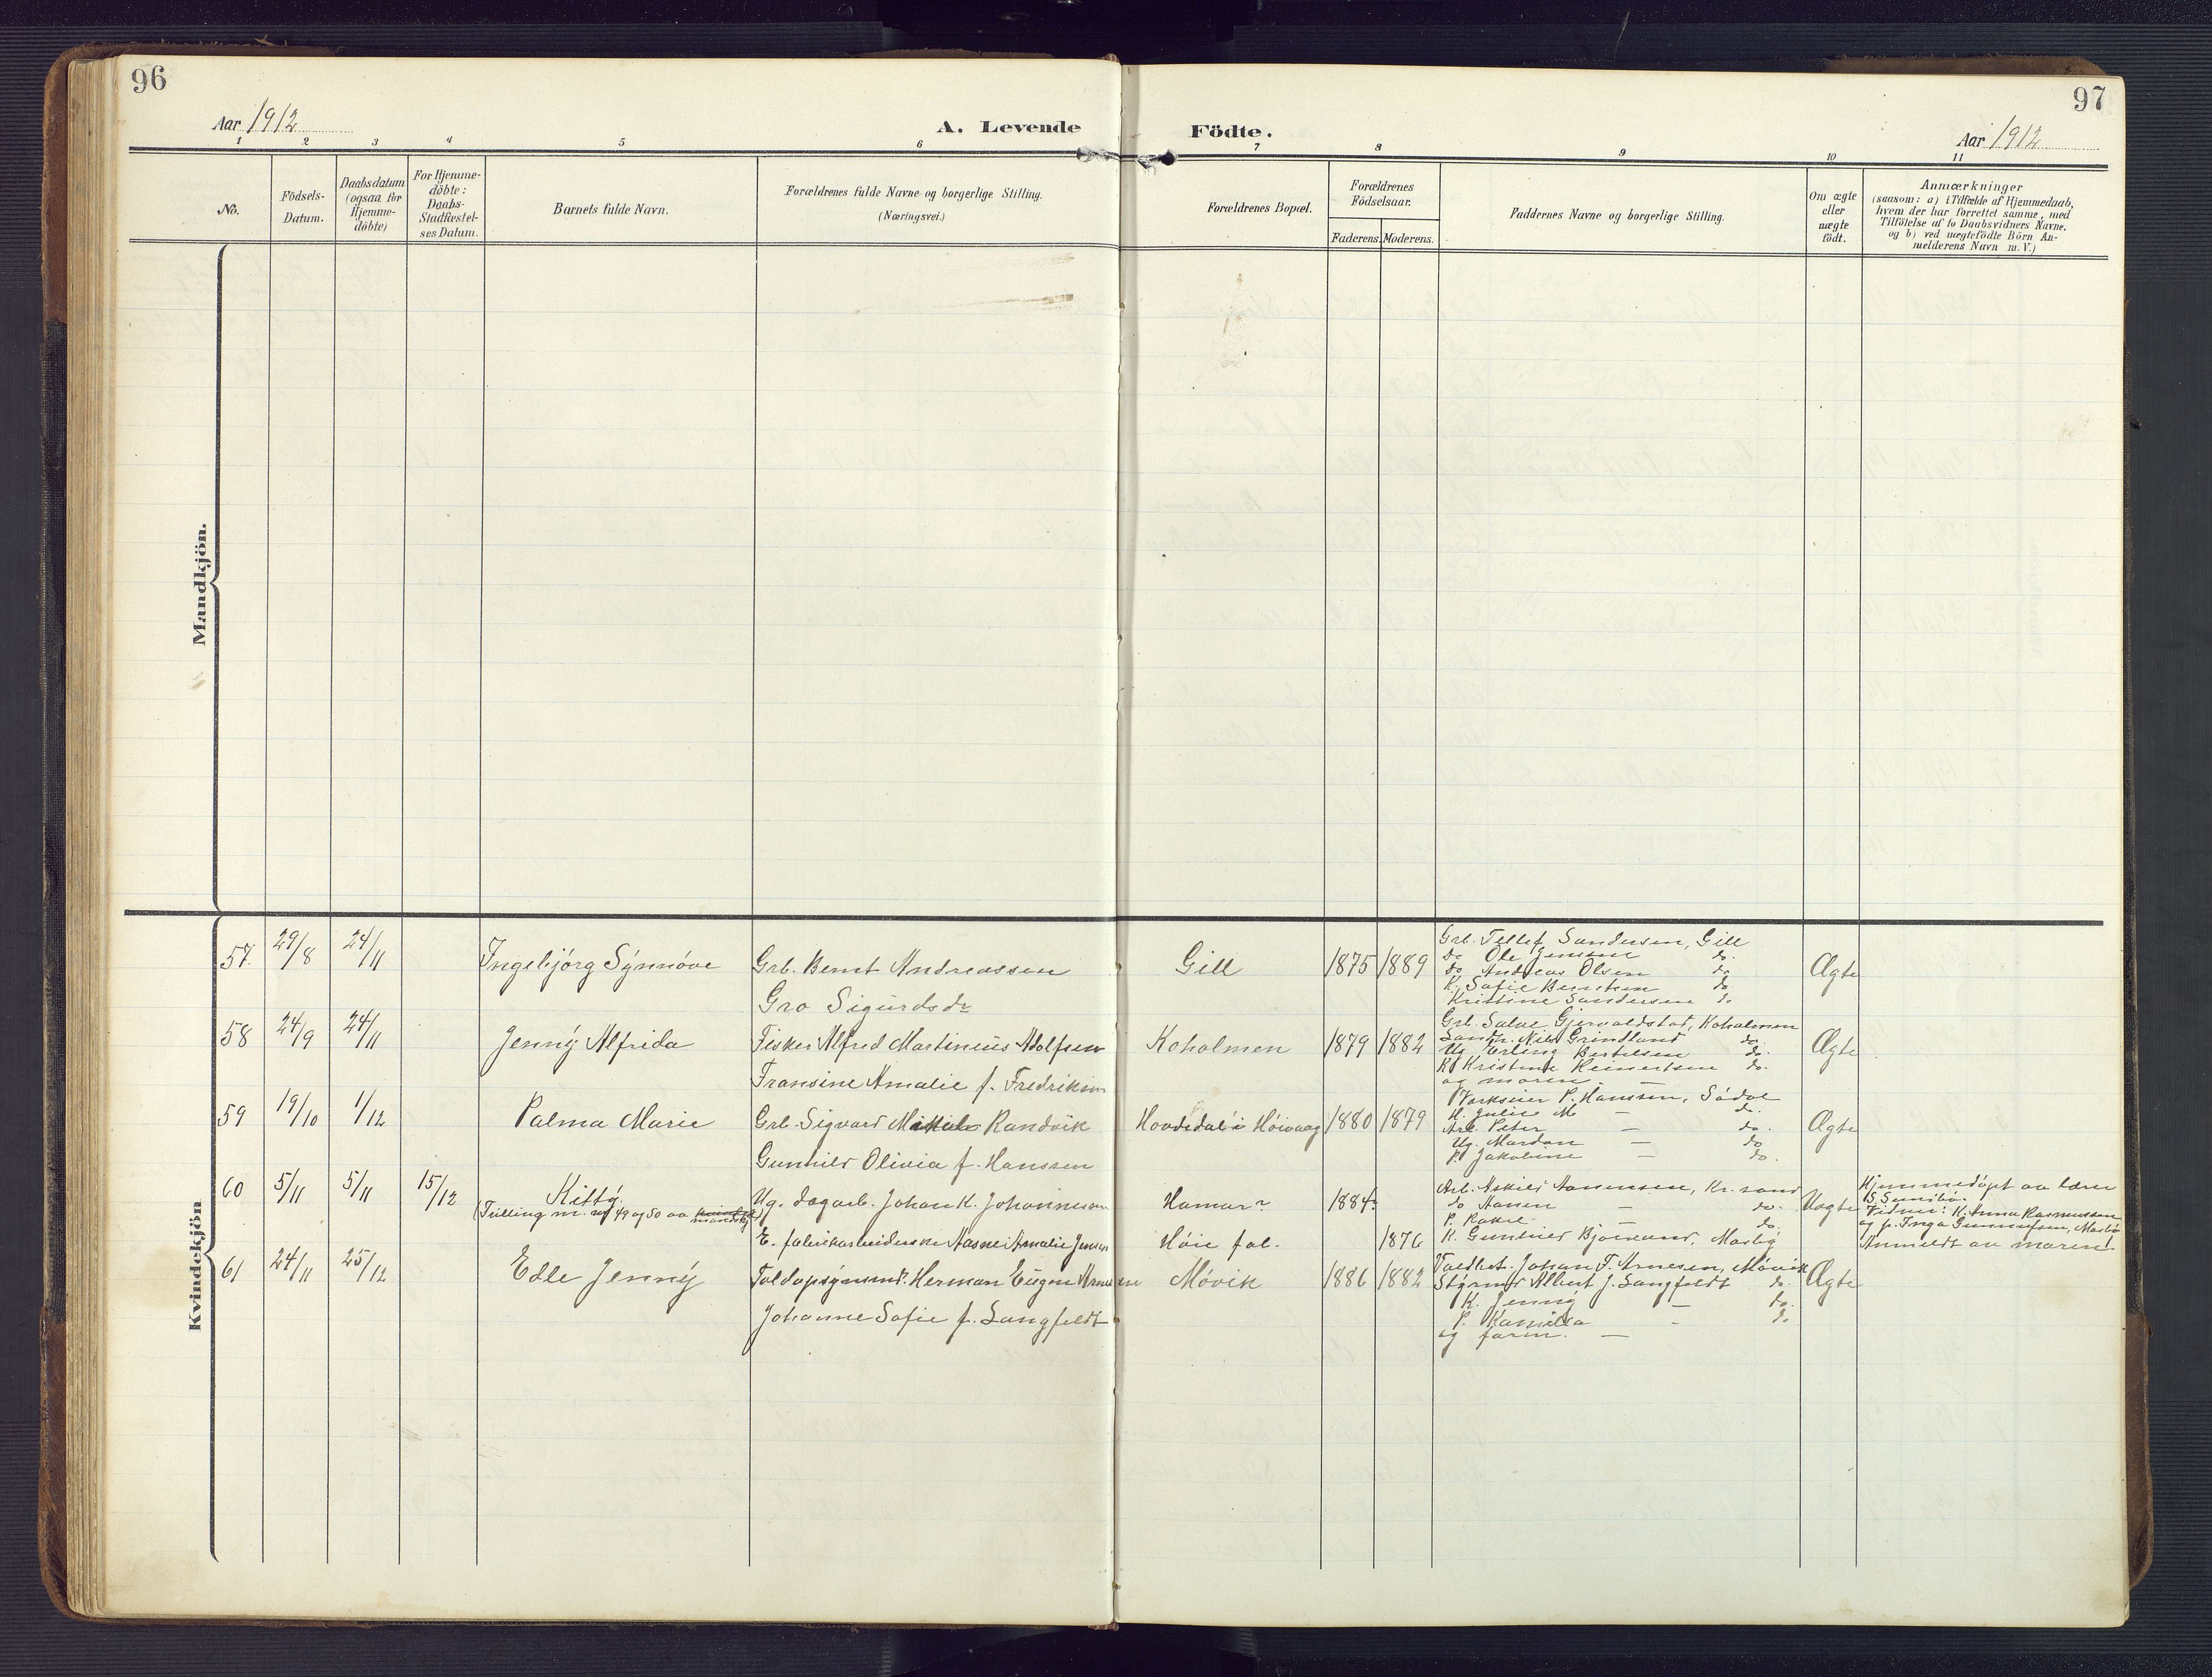 96
97
Aar 1912
A. Levende
Födte.
Aar 1912
1 2 3 4 5 6 7 8 9 10 11
No.
Födsels-
Datum.
Daabsdatum
(ogsaa for
Hjemme-
döbte)
For Hjemme-
döbte:
Daabs-
Stadfæstel-
ses Datum.
Barnets fulde Navn.
Forældrenes fulde Navne og borgerlige Stilling.
(Næringsvei.)
Forældrenes Bopæl.
Forældrenes
Födselsaar.
Faderens. Moderens.
Faddernes Navne og borgerlige Stilling.
Om ægte
eller
uægte
födt.
Anmærkninger
(saasom: a) i Tilfælde af Hjemmedaab,
hvem der har forrettet samme, med
Tilföielse af to Daabsvidners Navne,
og b) ved uægtefödte Börn An-
melderens Navn m. V.)
Mandkjön.
Kvindekjön
57. 29/8 24/11 Ingebjörg Synnöve
Grb. Bernt Andreassen
Gro Sigurdsdr
Gill 1875 1889
Grb. Tellef Sandersen, Gill
do Ole Jensen do.
do Andreas Olsen do
K. Sofie Berntsen do
Kristine Sandersen do
Ægte
58 24/9 24/11 Jenny Alfrida
Fisker Alfred Martinius Adolfsen
Fransine Amalie f. Fredriksen
Koholmen 1879 1882
Grb. Salve Gjervoldstad, Koholmen
Nils Grindland do.
Ug Erling Bertelsen do.
K Kristine Reinertsen do.
og moren
Ægte
59 19/10 1/12 Palma Marie
Grb. Sigvard Randvik
Gunhild Olivia f. Hanssen
Hovdedal i Höivaag 1880 1879
P. Hanssen,
H. Julie M — do.
Arb. Peter — do.
Ug. Mardon — do
P. Jakobine — do.
Ægte
60 5/11 5/11 15/12 Kitty
(Tvilling m. 49 og 50 av mandkj)
Ug. dagarb. Johan K. Johannesen
E. fabrikarbeiderske Aasne Amalie Jensen
Hamar?
Höie fab.
1884?
1876
Arb. Askild Aanensen, Kr. sand
do Aanen — do.
P. Rakel — do
K. Gunhild Bjorvand, Mosby
Uægte
Hjemmedöpt av lærer
S. Sundbö.
Vidner: K. Anna Rasmussen
og p. Inga Gunnufsen, Mosby
Anmeldt av moren.
61 24/11 25/12 Edle Jenny
Toldopsynsmd. Herman Eugen Arnesen
Johanne Sofie f. Langfeldt
Mövik 1886 1882
Toldbet. Johan F. Arnesen, Mövik
Styrmd Albert J. Langfeldt do
K. Jenny — do.
P. Kamilla - do
og faren. —
Ægte